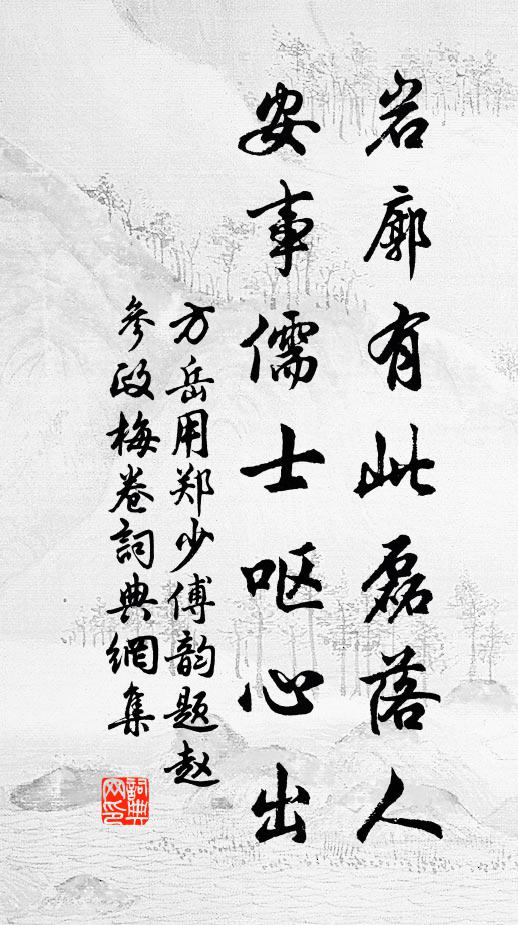 岩廊有此磊落人
安事儒士呕心出
方岳用郑少傅韵题赵
参政梅卷詞典網集
詞典网印